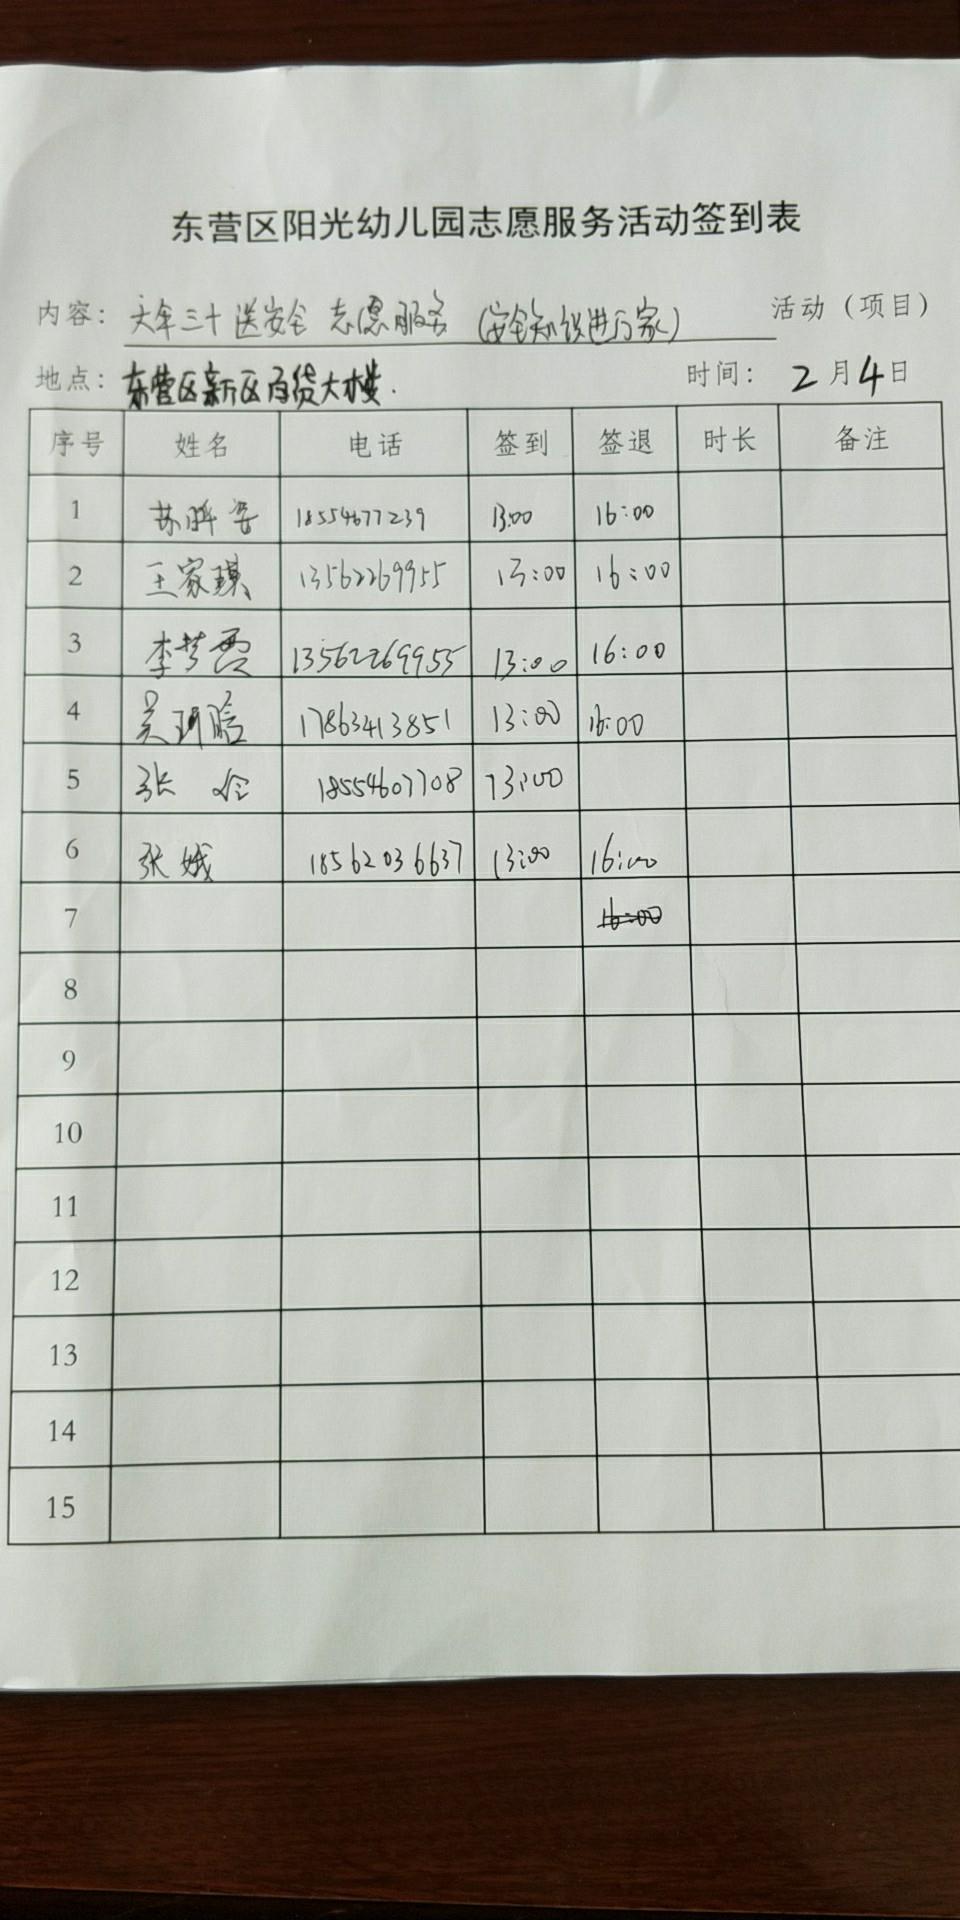 东营区阳光幼儿园志愿服务活动签到表
内容：大年三十送安全 志愿服务（安全知识进万家） 活动（项目）
地点：东营区新区百货大楼. 时间：2月4日
序号 姓名 电话 签到 签退 时长 备注
1 18554677239 13:00 16:00
2 王家琪 13562269955 13:00 16:00
3 李梦霞 13562269955 13:00 16:00
4 吴珂晗 17863413851 13:00 16:00
5 张 18554607708 13:00
6 张娥 18562036637 13:00 16:00
7 16:00
8
9
10
11
12
13
14
15